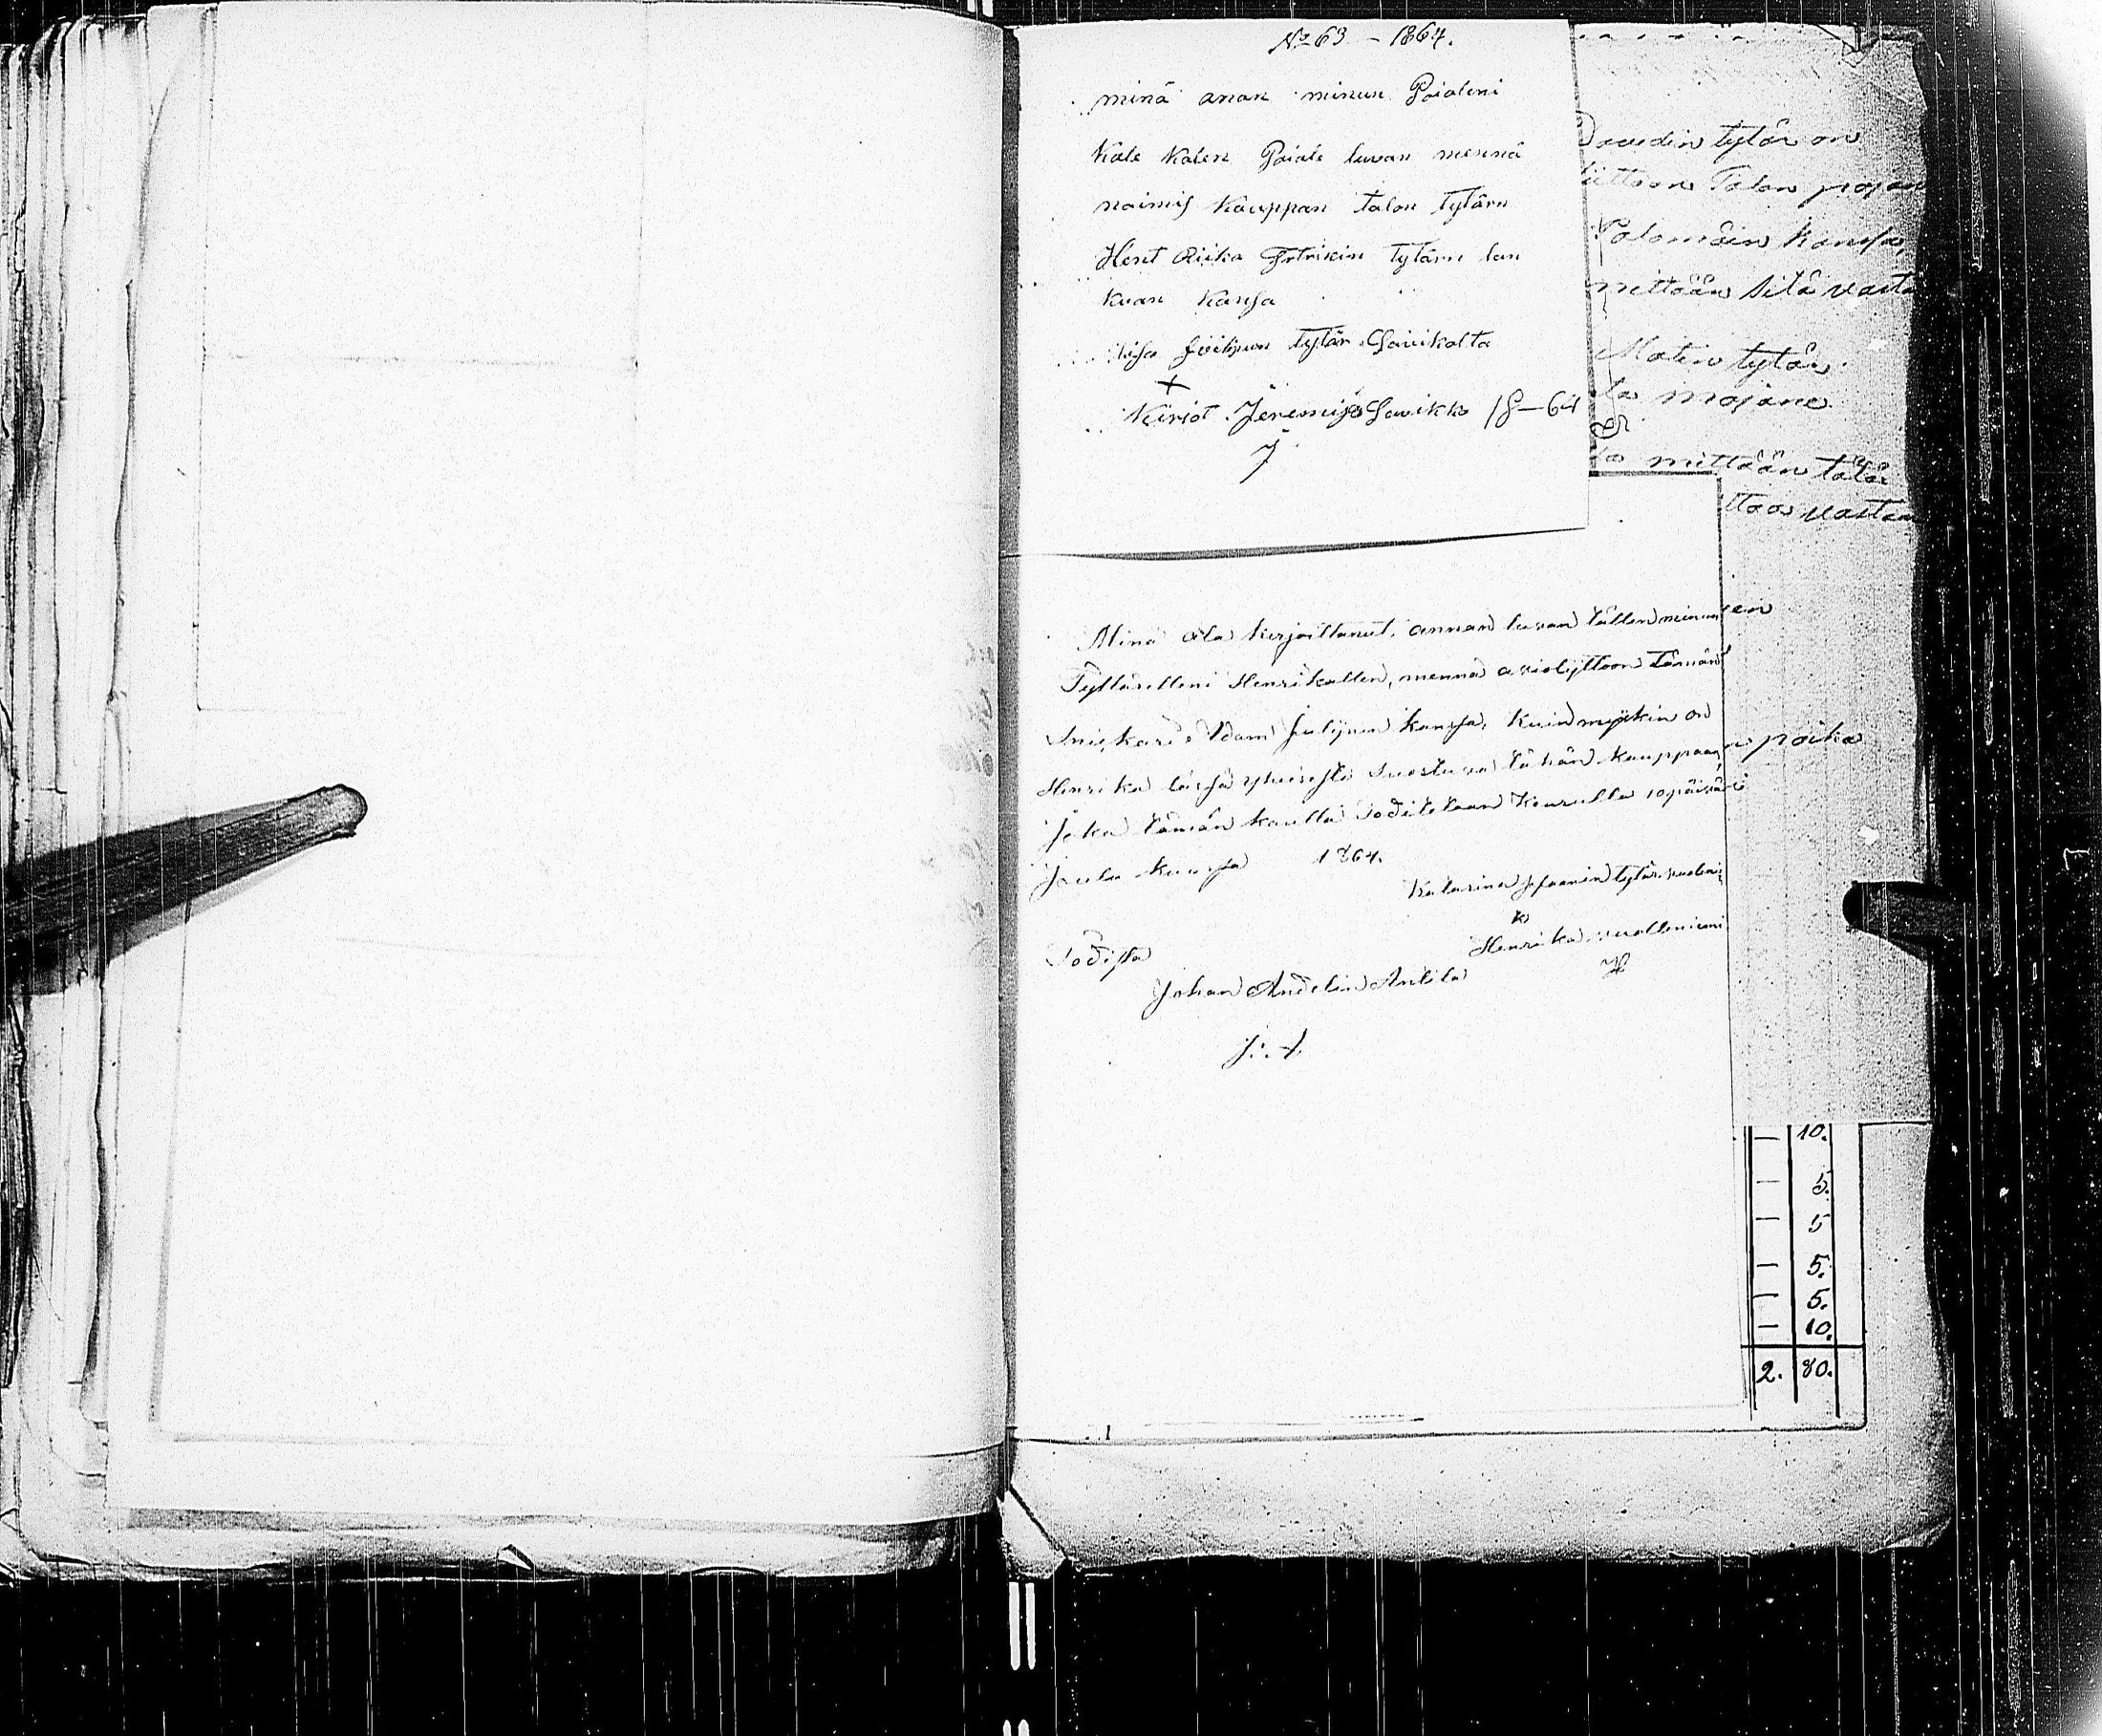 No 63 - 1864.
minä anan minun Poialeni
Kale Kalen Poiale luvan mennä
naimis Kauppan talon Tytärn
Hent Riika Frtrikin Tytärn lan
kuan kansa
lisa filipun tytär Savikolta
+
Kiriot Jeremijas Savikko 18-64
J
Daudin tytär on
liittoon Talon pojan
Palomäin kansa,
mittään sitä vasta
Matin tytär
la majane
la mittään tätä
ttoa vastan
Minä ala kirjoittanut, annan luvan tällen minun
Tyttärelleni Henrikallen, mennä avioliyttoon tämän
Inickari Adam Julijnin kansa, kuin myökin on
Henrika läisä yhteisesta suostuva tähän kauppaan
Joka tämän kautta todistetaan Keurulla 10 päivä
Joulu kuusa 1864.
Katarina Jofaanin tytär
Henrika vuolleniemi
Todista
Johan Andelin Antila
J. A.
ein
poika
— 10.
— 5.
— 5
— 5.
— 5.
— 10.
2. 80.